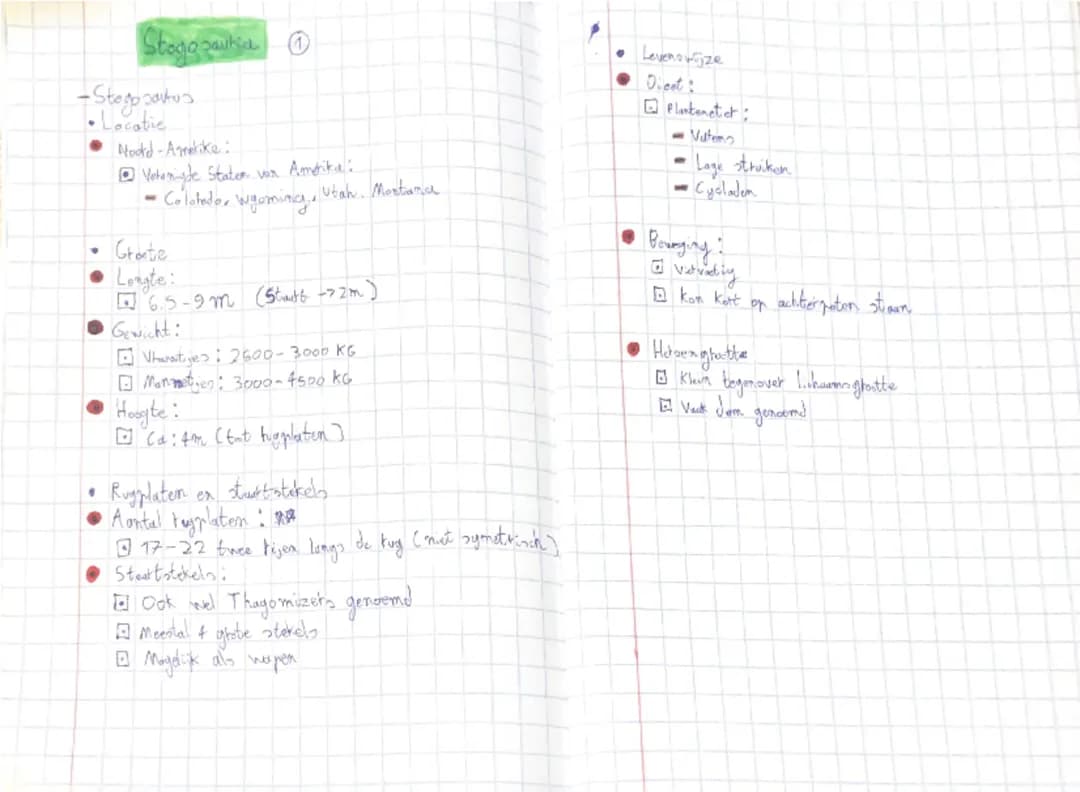 Stegosauria ①
- Stegosaurus
• Locatie
• Noord-Amerika:
Verenigde Staten van Amerika:
- Colorado, wyoming, Utah, Montana
• Grootte
• Lengte:
6.5-9 m (Staart -> 2m)
• Gewicht:
Vrouwtjes: 2500-3000 KG
Mannetjes: 3000-4500 KG
• Hoogte:
Ca: 4m (tot rugplaten)
• Rugplaten en staartstekels
• Aantal rugplaten:
17-22 twee rijen langs de rug (niet symetrisch)
• Staartstekels:
Ook wel Thagomizers genoemd
Meestal 4 grote stekels
Mogelijk als wapen
• Levenswijze
• Dieet:
Planteneter:
- Varens
- Lage struiken
- Cycladen
• Beweging:
Viervoetig
Kon kort op achterpoten staan
• Hersengrootte
Klein tegenover lichaamsgrootte
Vaak dom genoemd